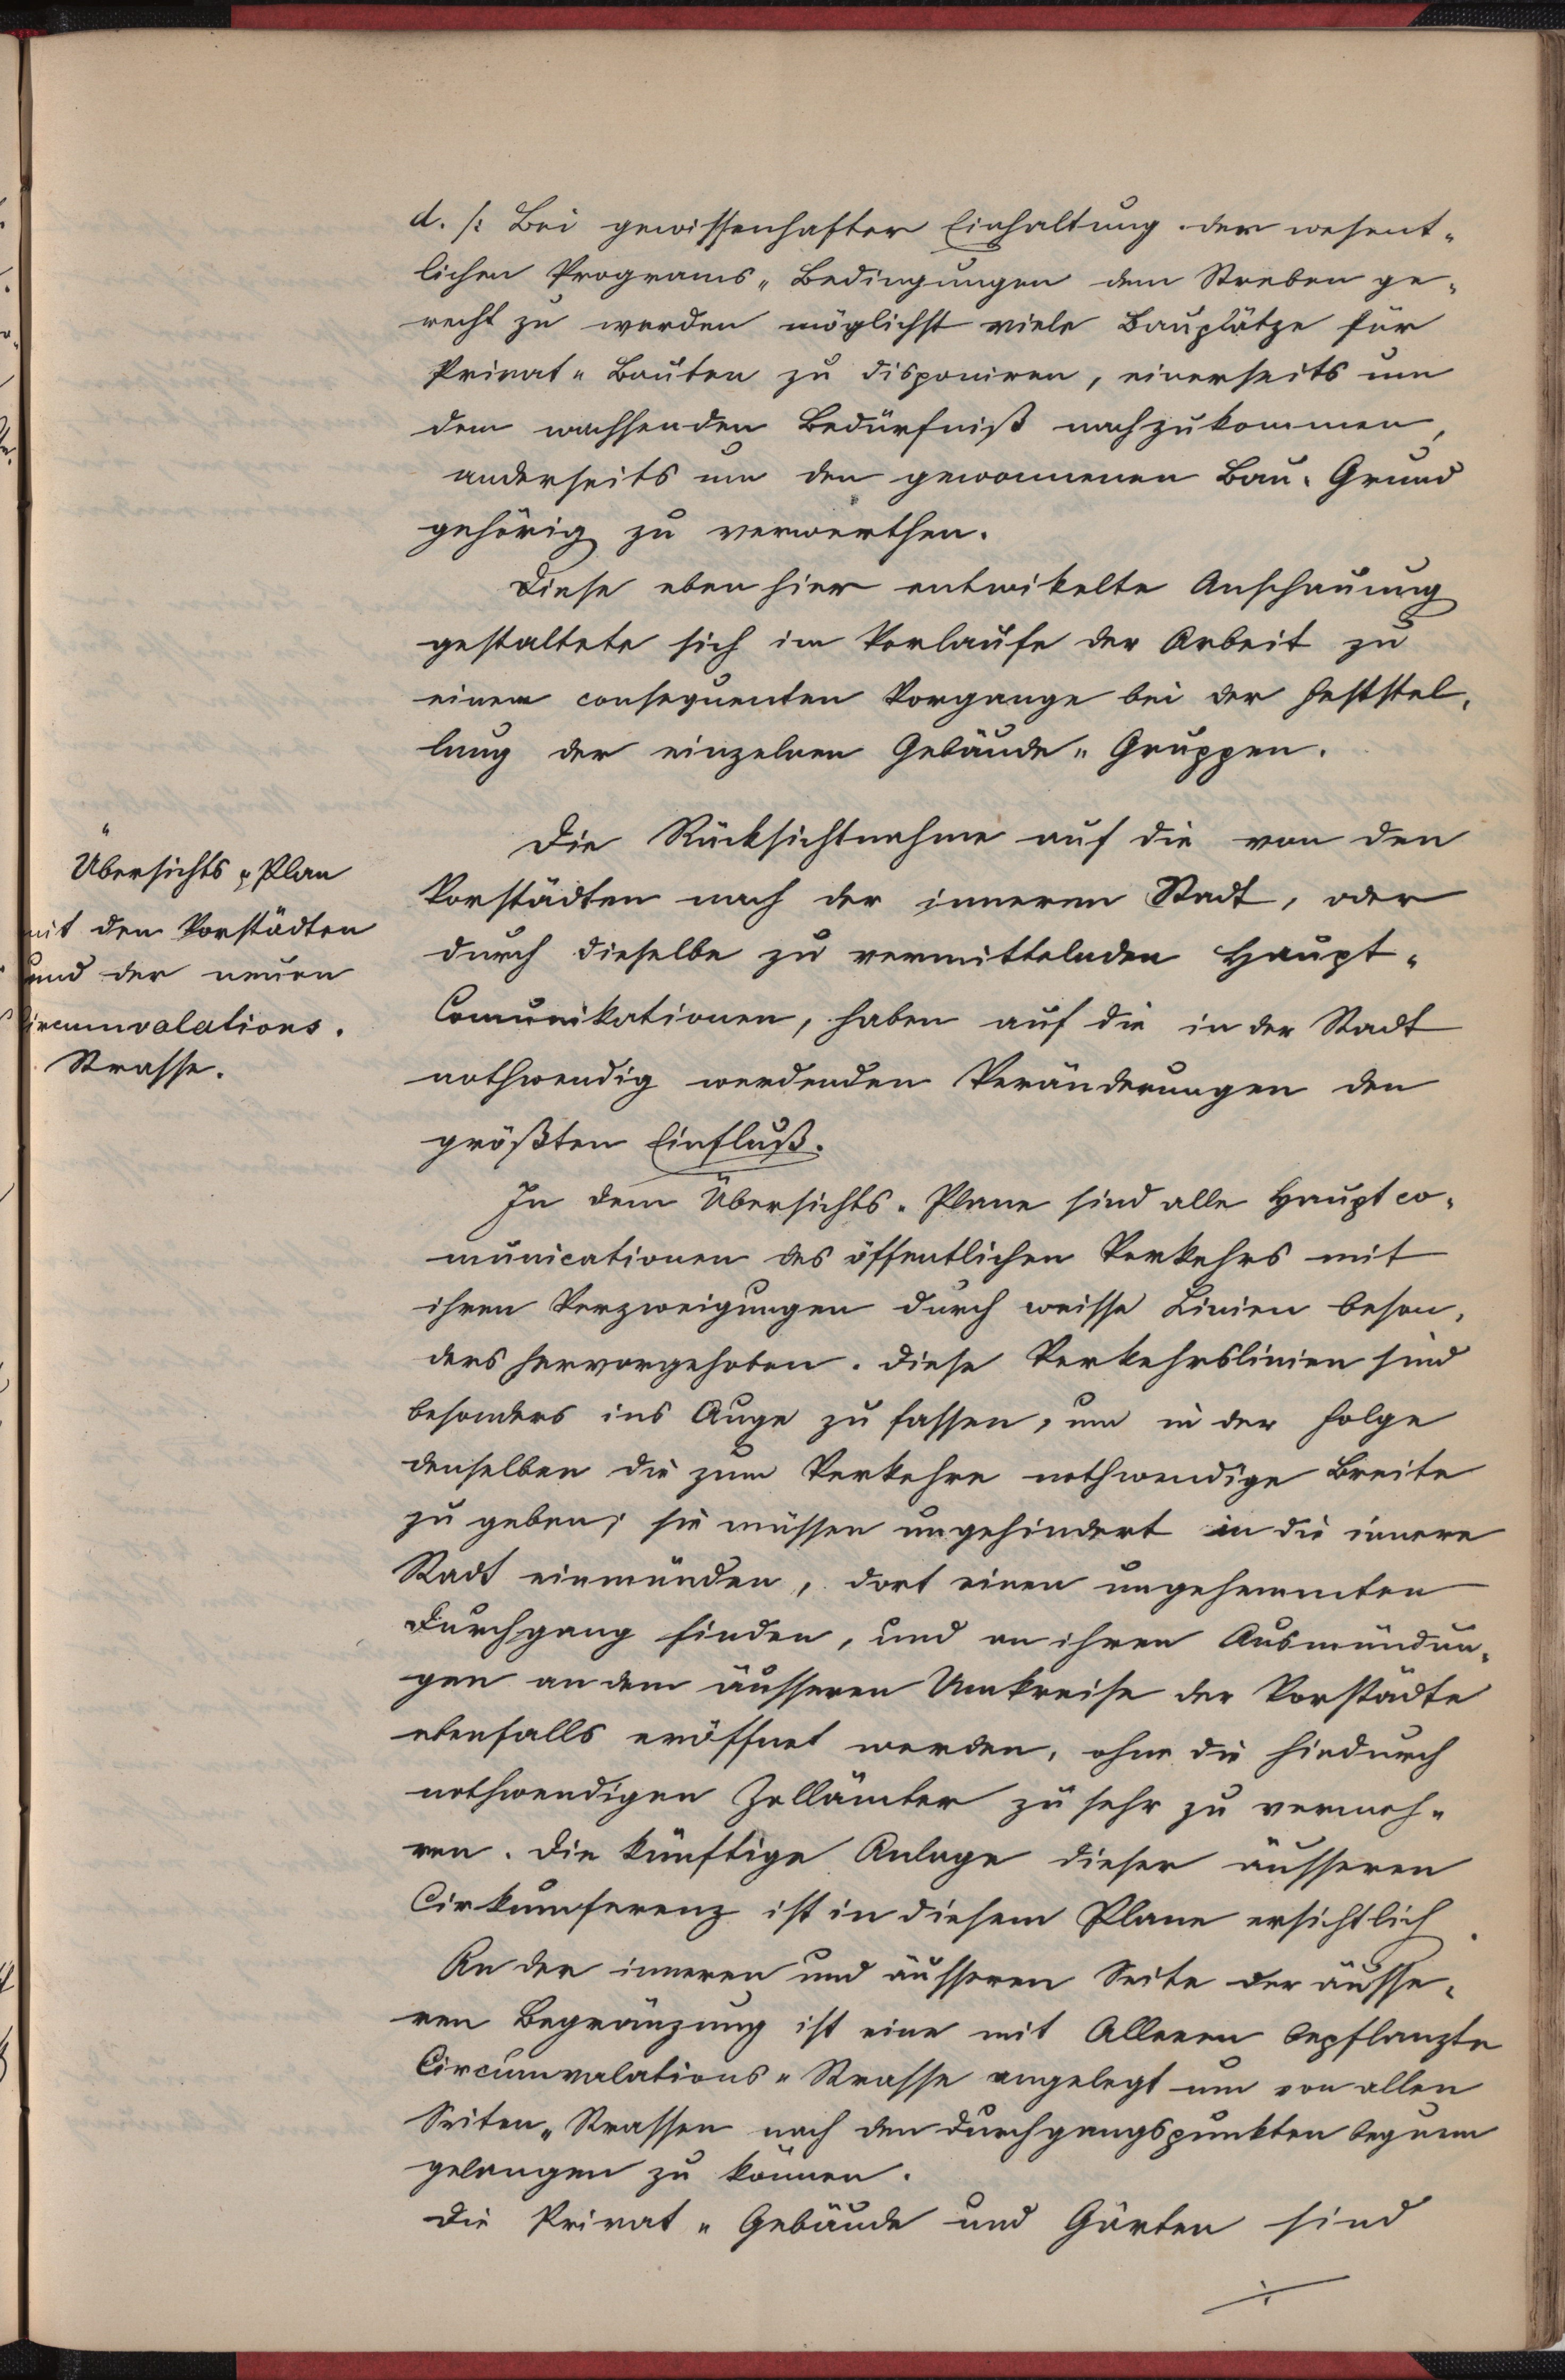 d. /: Bei gewissenhafter Einhaltung der wesent-
lichen Programs-Bedingungen dem Streben ge-
recht zu werden möglichst viele Bauplätze für
Privat-Bauten zu disponiren, einerseits um
dem wachsenden Bedürfniß nachzukommen,
anderseits um den gewonnenen Bau-Grund
gehörig zu verwerthen.
Diese eben hier entwikelte Anschauung
gestaltete sich im Verlaufe der Arbeit zu
einem consequenten Vorgange bei der Feststel-
lung der einzelnen Gebäude-Gruppen.
Übersichts-Plan
mit den Vorstädten
und der neuen
Circumvalations-
Strasse.
Die Rücksichtnahme auf die von den
Vorstädten nach der inneren Stadt, oder
durch dieselbe zu vermittelnden Haupt-
Comunikationen, haben auf die in der Stadt
nothwendig werdenden Veränderungen den
größten Einfluß.
In dem Übersichts-Plane sind alle Hauptco-
municationen des öffentlichen Verkehrs mit
ihren Verzweigungen durch weisse Linien beson-
ders hervorgehoben. Diese Verkehrslinien sind
besonders ins Auge zu fassen, um in der Folge
denselben die zum Verkehre nothwendige Breite
zu geben; sie müssen ungehindert in die innere
Stadt einmünden, dort einen ungehemmten
Durchgang finden, und an ihren Ausmündun-
gen an dem äusseren Umkreise der Vorstädte
ebenfalls eröffnet werden, ohne die hiedurch
nothwendigen Zollämter zu sehr zu vermeh-
ren. Die künftige Anlage dieser äusseren
Cirkumferenz ist in diesem Plane ersichtlich.
An der inneren und äusseren Seite der äusse-
ren Begränzung ist eine mit Alleeen bepflanzte
Circumvalations-Strasse angelegt um von allen
Seiten-Strassen nach den Durchgangspunkten bequem
gelangen zu können.
Die Privat-Gebäude und Gärten sind